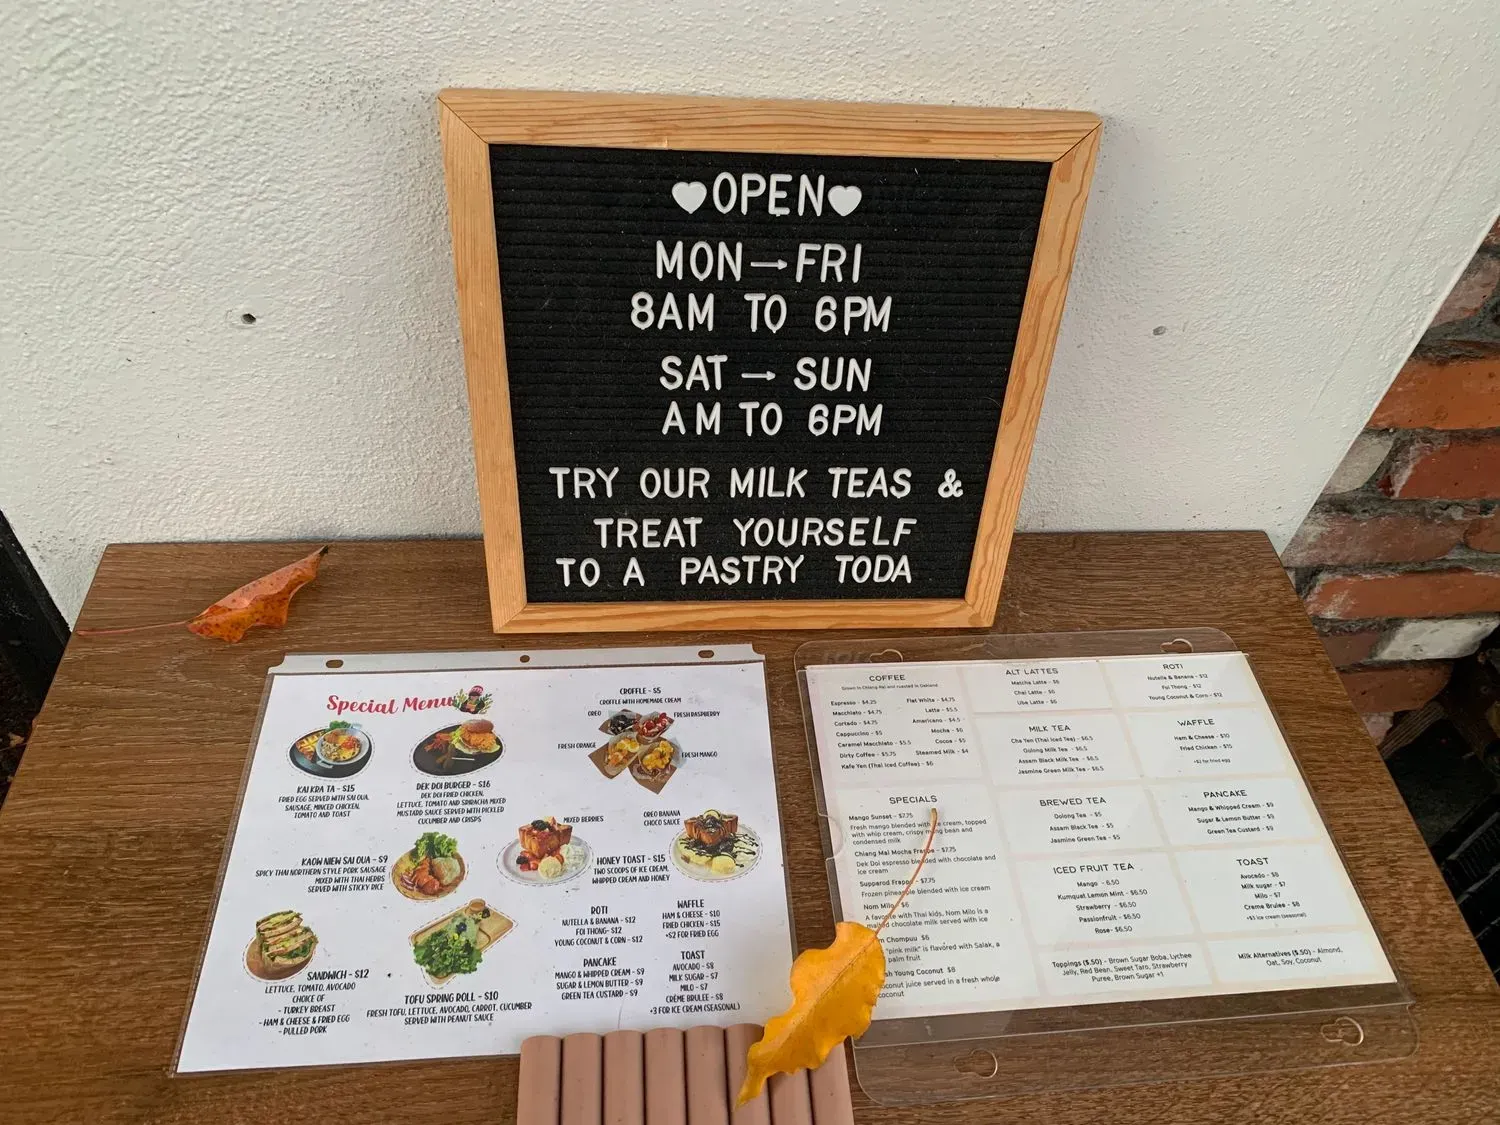 OPEN
MON→FRI
8AM TO 6PM
SAT→SUN
AM TO 6PM
TRY OUR MILK TEAS &
TREAT YOURSELF
TO A PASTRY TODA
Special Menu
KAI KRA TA - $15
FRIED EGG SERVED WITH SAI OUA,
SAUSAGE, MINCED CHICKEN,
TOMATO AND TOAST
DEK DOI BURGER - $16
DEK DOI FRIED CHICKEN,
LETTUCE, TOMATO AND SRIRACHA MIXED
MUSTARD SAUCE SERVED WITH PICKLED
CUCUMBER AND CRISPS
CROFFLE - $5
CROFFLE WITH HOMEMADE CREAM
OREO
FRESH RASPBERRY
FRESH ORANGE
FRESH MANGO
KAOW NIEW SAI OUA - $9
SPICY THAI NORTHERN STYLE PORK SAUSAGE
MIXED WITH THAI HERBS
SERVED WITH STICKY RICE
MIXED BERRIES
OREO BANANA
CHOCO SAUCE
HONEY TOAST - $15
TWO SCOOPS OF ICE CREAM,
WHIPPED CREAM AND HONEY
SANDWICH - $12
LETTUCE, TOMATO, AVOCADO
CHOICE OF
- TURKEY BREAST
- HAM & CHEESE & FRIED EGG
- PULLED PORK
TOFU SPRING ROLL - $10
FRESH TOFU, LETTUCE, AVOCADO, CARROT, CUCUMBER
SERVED WITH PEANUT SAUCE
ROTI
NUTELLA & BANANA - $12
FOI THONG- $12
YOUNG COCONUT & CORN - $12
PANCAKE
MANGO & WHIPPED CREAM - $9
SUGAR & LEMON BUTTER - $9
GREEN TEA CUSTARD - $9
WAFFLE
HAM & CHEESE - $10
FRIED CHICKEN - $15
+$2 FOR FRIED EGG
TOAST
AVOCADO - $8
MILK SUGAR - $7
MILO - $7
CRÈME BRULEE - $8
+3 FOR ICE CREAM (SEASONAL)
COFFEE
Grown in Chiang Mai and roasted in Oakland
Espresso - $4.25
Macchiato - $4.75
Cortado - $4.75
Cappuccino - $5
Caramel Macchiato - $5.5
Dirty Coffee - $5.75
Kafe Yen (Thai Iced Coffee) - $6
Flat White - $4.75
Latte - $5.5
Americano - $4.5
Mocha - $6
Cocoa - $5
Steamed Milk - $4
SPECIALS
Mango Sunset - $7.75
Fresh mango blended with ice cream, topped
with whip cream, crispy mung bean and
condensed milk
Chiang Mai Mocha Frappe - $7.75
Dek Doi espresso blended with chocolate and
ice cream
Supparod Frappe - $7.75
Frozen pineapple blended with ice cream
Nom Milo - $6
A favorite with Thai kids, Nom Milo is a
malted chocolate milk served with ice
Chompuu $6
"pink milk" is flavored with Salak, a
palm fruit
Young Coconut $8
juice served in a fresh whole
coconut
ALT LATTES
Matcha Latte - $6
Chai Latte - $6
Ube Latte - $6
MILK TEA
Cha Yen (Thai Iced Tea) - $6.5
Oolong Milk Tea - $6.5
Assam Black Milk Tea - $6.5
Jasmine Green Milk Tea - $6.5
BREWED TEA
Oolong Tea - $5
Assam Black Tea - $5
Jasmine Green Tea - $5
ICED FRUIT TEA
Mango - 6.50
Kumquat Lemon Mint - $6.50
Strawberry - $6.50
Passionfruit - $6.50
Rose- $6.50
Toppings ($.50) - Brown Sugar Boba, Lychee
Jelly, Red Bean, Sweet Taro, Strawberry
Puree, Brown Sugar +1
ROTI
Nutella & Banana - $12
Foi Thong - $12
Young Coconut & Corn - $12
WAFFLE
Ham & Cheese - $10
Fried Chicken - $15
+$2 for fried egg
PANCAKE
Mango & Whipped Cream - $9
Sugar & Lemon Butter - $9
Green Tea Custard - $9
TOAST
Avocado - $8
Milk sugar - $7
Milo - $7
Creme Brulee - $8
+$3 ice cream (seasonal)
Milk Alternatives ($.50) - Almond,
Oat, Soy, Coconut